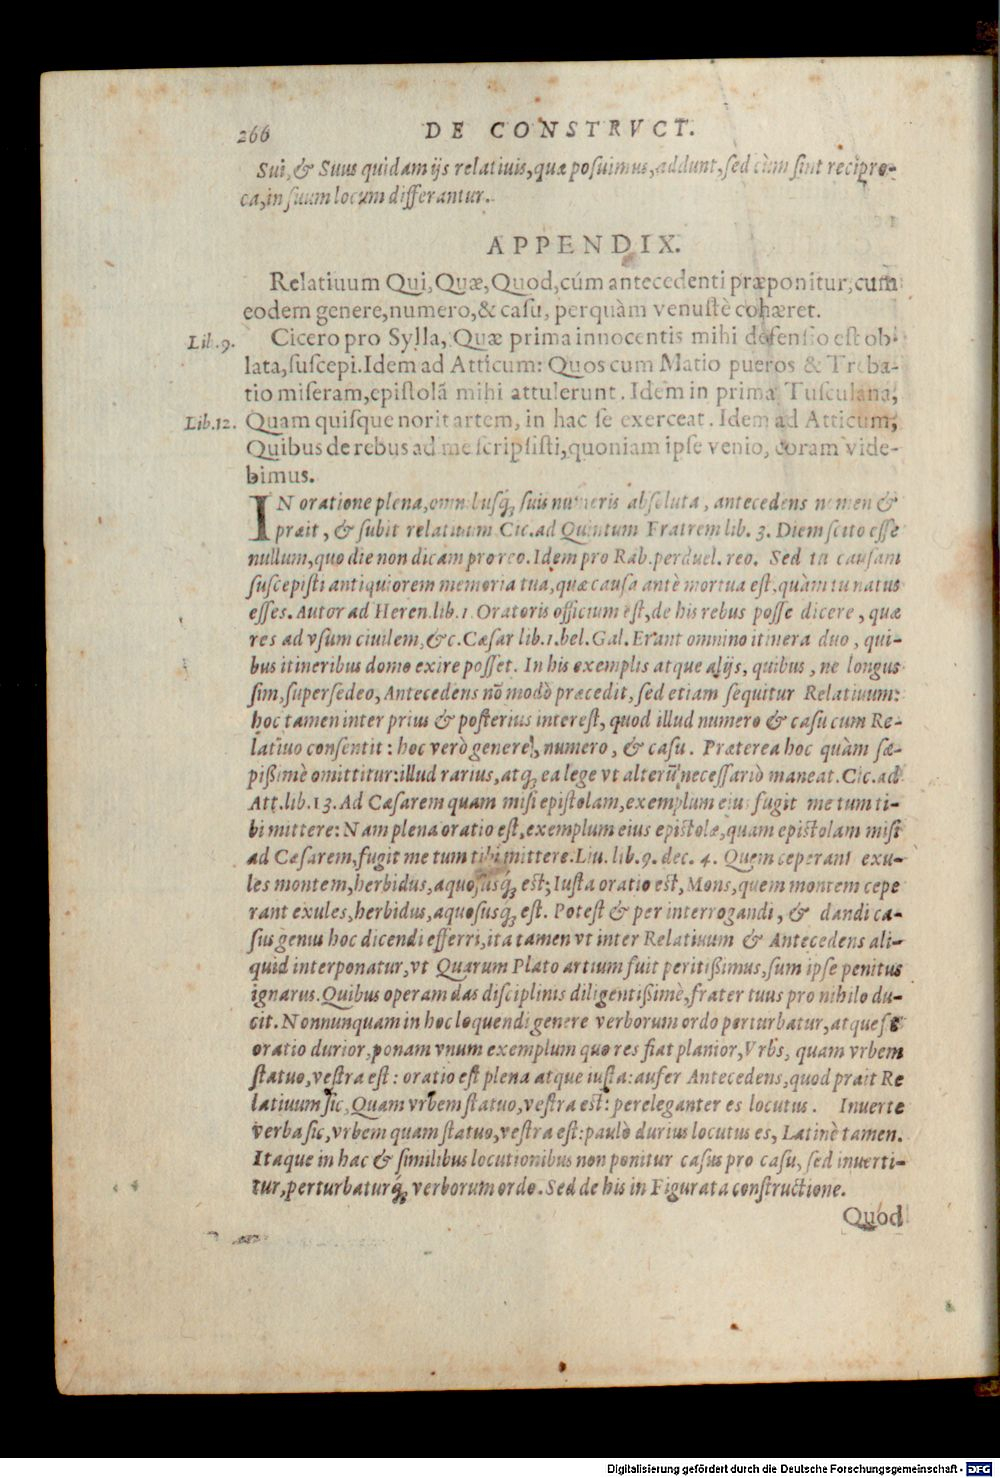 266 DE CONSTRVCT.
Sui, & Suus quidam ijs relatiuis, quæ posuimus, addunt, sed cùm sint recipro-
ca, in suum locum differantur.
APPENDIX.
Relatiuum Qui, Quæ, Quod, cúm antecedenti præponitur, cum
eodem genere, numero, & casu, perquàm venustè cohæret.
Lib. 9. Cicero pro Sylla, Quæ prima innocentis mihi defensio est ob-
lata, suscepi. Idem ad Atticum: Quos cum Matio pueros & Treba-
tio miseram, epistolā mihi attulerunt. Idem in prima Tusculana,
Lib. 12. Quam quisque norit artem, in hac se exerceat. Idem ad Atticum,
Quibus de rebus ad me scripsisti, quoniam ipse venio, coram vide-
bimus.
IN oratione plena, omnibusq́; suis numeris absoluta, antecedens nomen &
præit, & subit relatiuum Cic. ad Quintum Fratrem lib. 3. Diem scito esse
nullum, quo die non dicam pro reo. Idem pro Rab. perduel. reo. Sed tu causam
suscepisti antiquiorem memoria tua, quæ causa antè mortua est, quàm tu natus
esses. Autor ad Heren. lib. 1. Oratoris officium est, de his rebus posse dicere, quæ
res ad vsum ciuilem, &c. Cæsar lib. 1. bel. Gal. Erant omnino itinera duo, qui-
bus itineribus domo exire posset. In his exemplis atque alijs, quibus, ne longus
sim, supersedeo, Antecedens nō modò præcedit, sed etiam sequitur Relatiuum:
hoc tamen inter prius & posterius interest, quod illud numero & casu cum Re-
latiuo consentit: hoc verò genere, numero, & casu. Præterea hoc quàm sæ-
pißimè omittitur: illud rarius, atq; ea lege vt alterū necessariò maneat. Cic. ad
Att. lib. 13. Ad Cæsarem quam misi epistolam, exemplum eius fugit me tum ti-
bi mittere: Nam plena oratio est, exemplum eius epistolæ, quam epistolam misi
ad Cæsarem, fugit me tum tibi mittere. Liu. lib. 9. dec. 4. Quem ceperant exu-
les montem, herbidus, aquosusq́; est; Iusta oratio est, Mons, quem montem cepe
rant exules, herbidus, aquosusq́; est. Potest & per interrogandi, & dandi ca-
sus genus hoc dicendi efferri, ita tamen vt inter Relatiuum & Antecedens ali-
quid interponatur, vt Quarum Plato artium fuit peritißimus, sum ipse penitus
ignarus. Quibus operam das disciplinis diligentißimè, frater tuus pro nihilo du-
cit. Nonnunquam in hoc loquendi genere verborum ordo perturbatur, atque fit
oratio durior, ponam vnum exemplum quo res fiat planior, Vrbs, quam vrbem
statuo, vestra est: oratio est plena atque iusta: aufer Antecedens, quod præit Re
latiuum sic, Quam vrbem statuo, vestra est: pereleganter es locutus. Inuerte
verba sic, vrbem quam statuo, vestra est: paulò durius locutus es, Latinè tamen.
Itaque in hac & similibus locutionibus non ponitur casus pro casu, sed inuerti-
tur, perturbaturq́; verborum ordo. Sed de his in Figurata constructione.
Quod
Digitalisierung gefördert durch die Deutsche Forschungsgemeinschaft - DFG